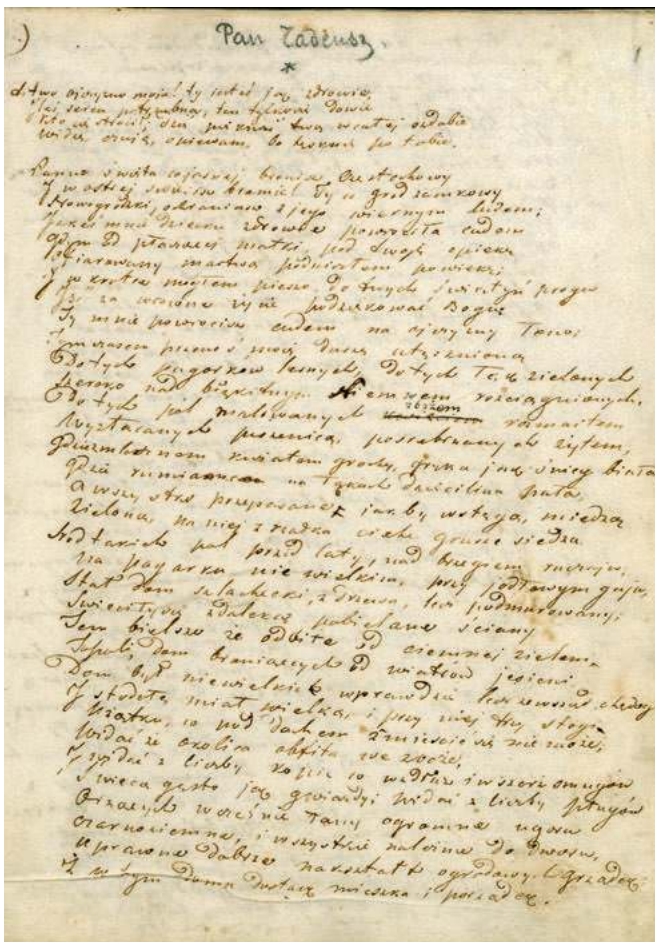 Pan Tadeusz.
*
1
Litwo ojczyzno moja! ty jesteś jak zdrowie,
ten tylko się dowie
Kto cię stracił; dziś piękność twą w całej ozdobie
Widzę opiewam, bo tęsknię po tobie.
Panno święta co jasnej bronisz Częstochowy
I w ostrej świecisz bramie! Ty co gród zamkowy
Nowogródzki, ochraniasz z jego wiernym ludem;
Jakeś mnie dziecko zdrowie powróciła cudem
Gdym od płaczącej matki, pod Twoję opiekę
Ofiarowany martwą podniosłem powiekę;
I w krotce mogłem pieszo do twych świątyń progu
za wrócone życie podziękować Bogu;
Ty mnie powrócisz cudem na ojczyzny łono;
przenoś moją duszę utęsknioną
Do tych pagorków leśnych, do tych łąk zielonych
szeroko nad błękitnym Niemnem rościągnionych.
Do tych pol malowanych zbożem rozmaitem
Wyzłacanych pszenicą, posrebrzanych żytem,
kwiatem grochy, gryka jak śnieg biała
gdzie na dzięcielina pała,
A wszystko przepasane jak by wstęgą, miedzą
Zieloną, na niej z rzadka ciche grusze siedzą.
Sród takich pol przed laty, nad brzegiem ruczaju,
Na pagorku nie wielkim, przy gaju,
Stał dom szlachecki, z drzewa, lecz podmurowany;
Swieciły się zdaleka pobielane ściany
Tem bielsze że odbite od ciemnej zieleni
Topoli, dom broniących od wiatrów jesieni
Dom był niewielki wprawdzie lecz zewsząd chędogi
I stodołę miał wielką, i przy niej trzy stogi
Użątku, co pod dachem zmieścić się nie może;
Widać że okolica obfita we zboże,
I widać z liczby kopic co wzdłuż i wszerz smugów
Swiecą gęsto jak gwiazdy; widać z liczby pługów
Orzących wcześnie łany ogromne ugoru
czarnoziemne, i wszystkie należne do dworu,
Uprawne dobrze na kształt ogrodowych grządek;
W tym domu dostatek mieszka i porządek.